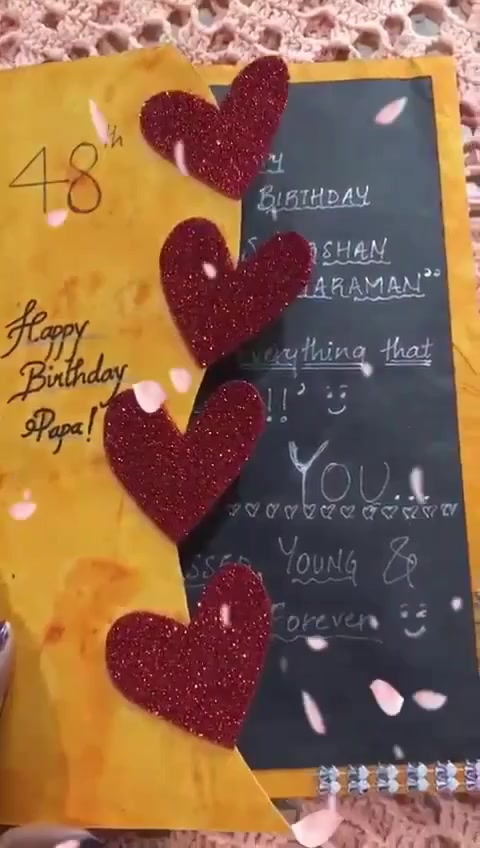 48th
Happy
Birthday
Papa!
BIRTHDAY
SHAN
ARAMAN"
Everything that
!!'
YOU...
SSED, YOUNG &
Forever